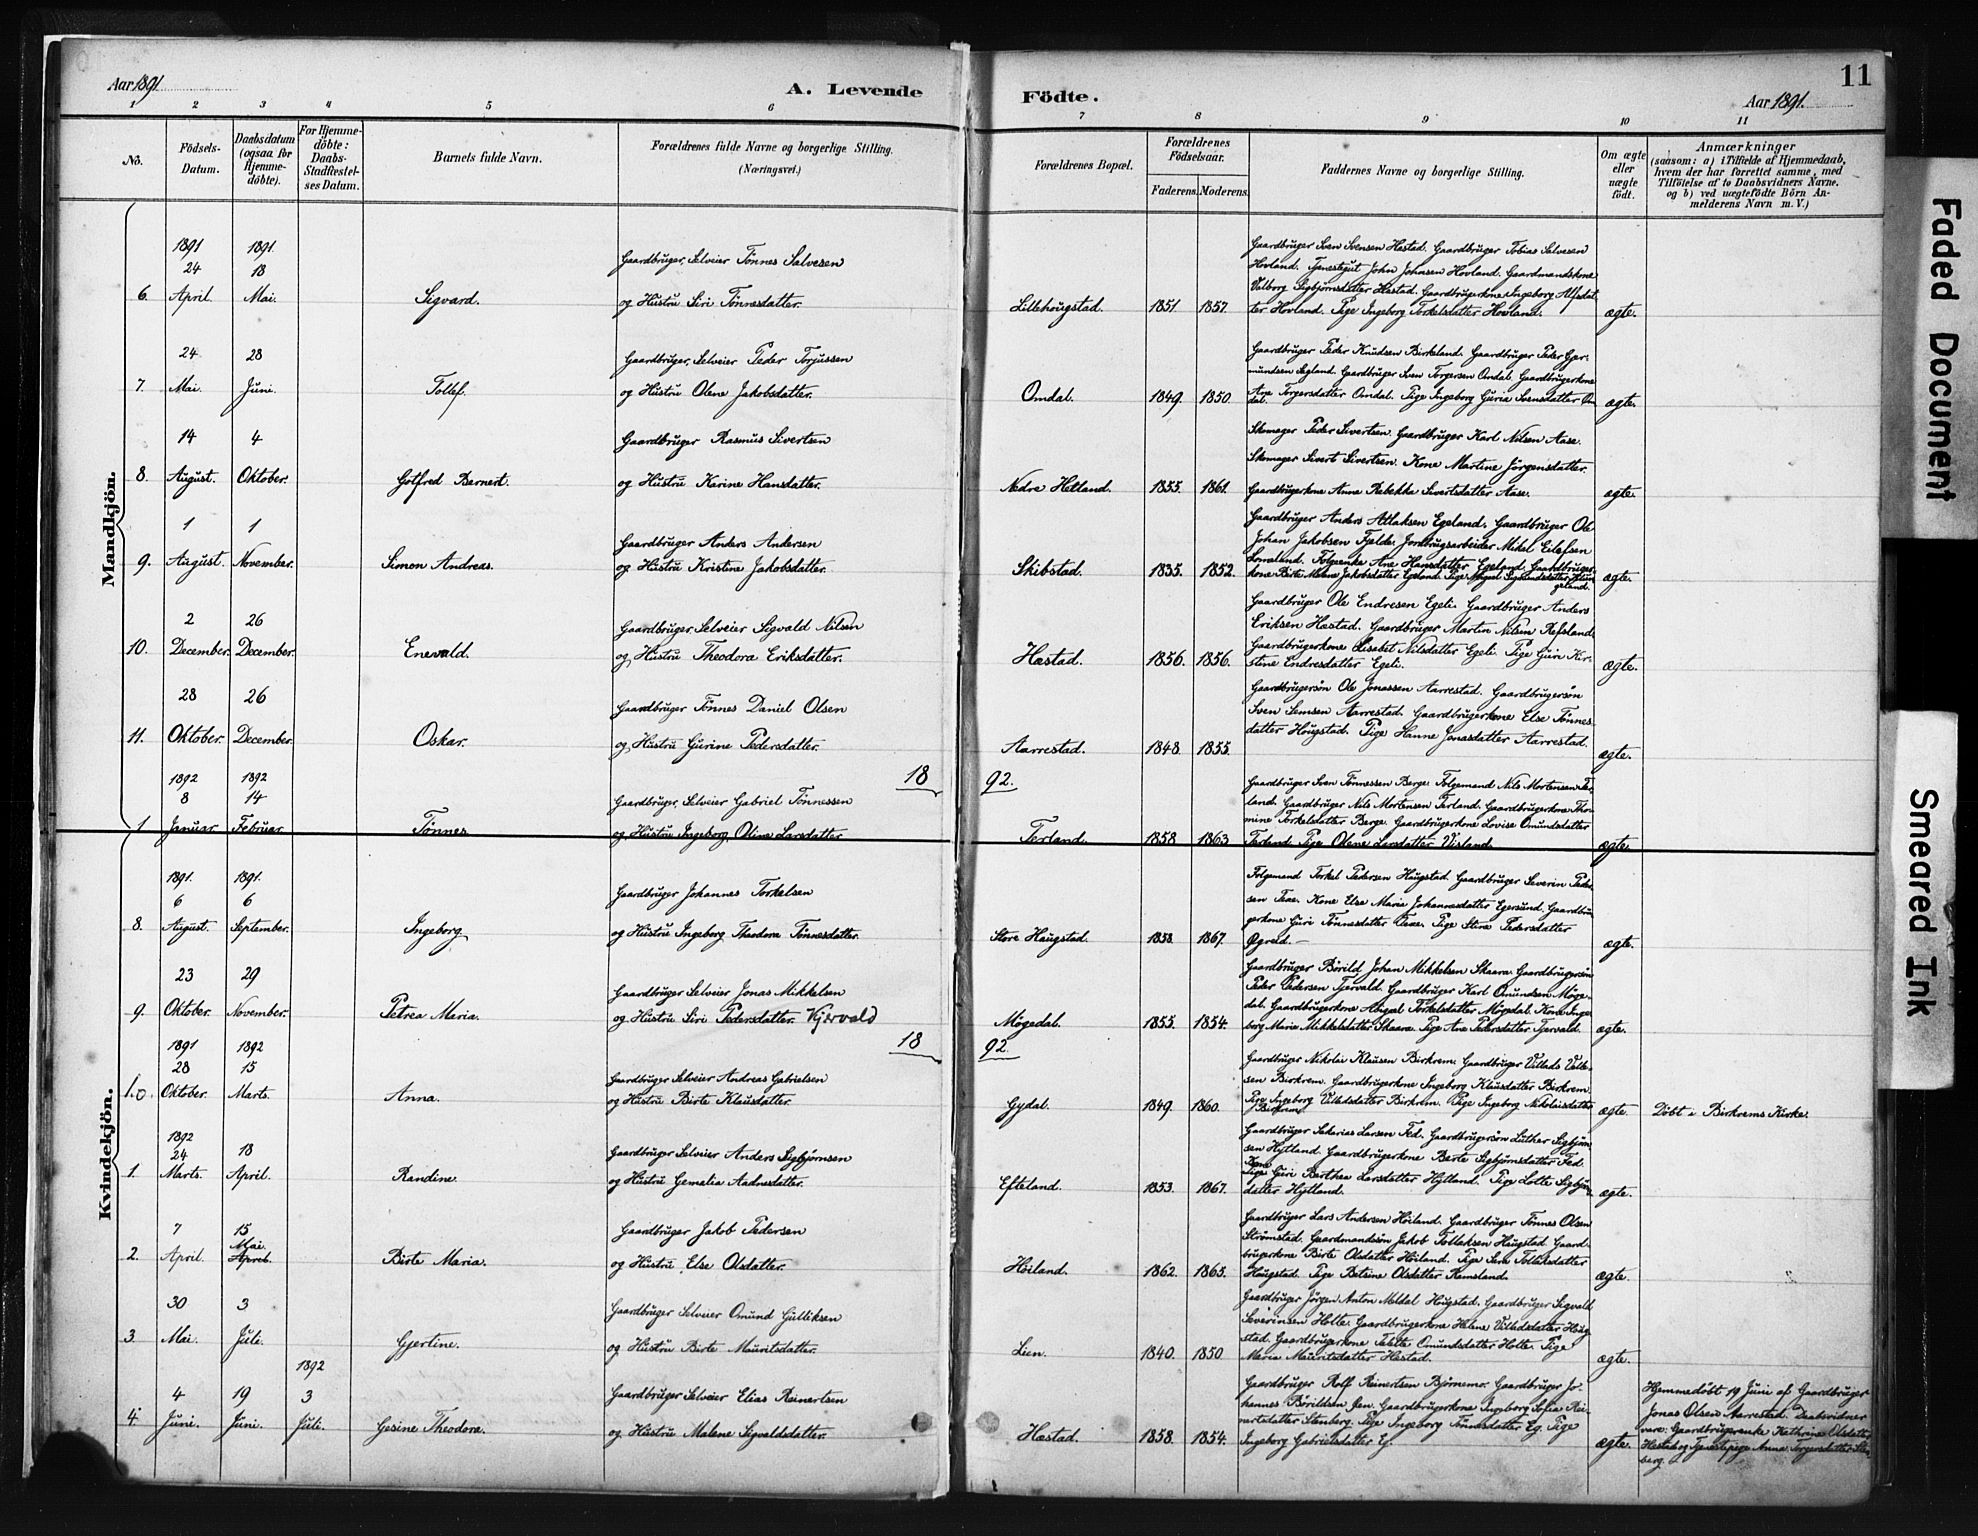 Aar 1891.
A. Levende
Födte.
11
Aar 1891.
1 2 3 4 5 6 7 8 9 10 11
No.
Födsels-Datum.
Daabsdatum (ogsaa for Hjemme-döbte).
For Hjemme-döbte: Daabs-Stadfæstel-ses Datum.
Barnets fulde Navn.
Forældrenes fulde Navne og borgerlige Stilling. (Næringsvei.)
Forældrenes Bopæl.
Forældrenes Födselsaar.
Faderens. Moderens.
Faddernes Navne og borgerlige Stilling.
Om ægte eller uægte födt.
Anmærkninger
(saasom: a) i Tilfælde af Hjemmedaab,
hvem der har forrettet samme, med
Tilföielse af to Daabsvidners Navne.
og b) ved uægtefödte Börn An-
melderens Navn m. V.)
Mandkjön.
1891 1891.
24 18
6. April. Mai. Sigvard.
Gaardbruger, Selveier Tönnes Salvesen
og Hustru Siri Tönnesdatter.
Lillehougstad. 1851. 1857.
Gaardbruger Sven Svensen Hæstad. Gaardbruger Tobias Salvesen
Hovland. Tjenestegut John Johnsen Hovland. Gaardmandskone
Valborg Sigbjörnsdatter Hæstad. Gaardbrugerkone Ingeborg Alfsdat
ter Hovland. Pige Ingeborg Torkelsdatter Hovland.
ægte.
24 28
7. Mai. Juni. Tollef.
Gaardbruger, Selveier Peder Torjussen
og Hustru Olene Jakobsdatter.
Omdal. 1849. 1850.
Gaardbruger Peder Knudsen Birkeland. Gaardbruger Peder Ger-
mundsen Segland. Gaardbruger Sven Torgersen Omdal. Gaardbrugerkone
Ane Torgersdatter Omdal. Pige Ingeborg Guria Svensdatter Om
dal.
ægte.
14 4
8. August. Oktober. Gotfred Bernert.
Gaardbruger Rasmus Sivertsen
og Hustru Karine Hansdatter.
Nedre Hetland. 1855. 1861.
Skomager Peder Sivertsen. Gaardbruger Karl Nilsen Aase.
Skomager Sivert Sivertsen. Kone Martine Jörgensdatter.
Gaardbrugerkone Anne Rebekka Sivertsdatter Aase.
ægte.
1 1
9. August. November. Simon Andreas.
Gaardbruger Anders Andersen
og Hustru Kristine Jakobsdatter.
Skibstad. 1835. 1852.
Gaardbruger Anders Atlaksen Egeland. Gaardbruger Ole
Johan Jakobsen Fjelde. Jordbrugsarbeider Mikal Eilefsen
Ane Hansdatter Egeland. Gaardbruger-
kone Birte Malene Jakobsdatter Egeland. Pige
ægte.
2 26
10. December. December. Enevald.
Gaardbruger, Selveier Sigvald Nilsen
og Hustru Theodora Eriksdatter.
Hæstad. 1856. 1856.
Gaardbruger Ole Endresen Egeli. Gaardbruger Anders
Eriksen Hæstad. Gaardbruger Martin Nilsen Refsland.
Gaardbrugerkone Elisabet Nilsdatter Egeli. Pige Guri Kir-
stine Endresdatter Egeli.
ægte.
28 26
11. Oktober. December. Oskar.
Gaardbruger Tönnes Daniel Olsen
og Hustru Gurine Pedersdatter.
Aarrestad. 1848. 1855.
Gaardbrugersön Ole Jonassen Aarrestad. Gaardbrugersön
Sven Semsen Aarrestad. Gaardbrugerkone Else Tönnes-
datter Hougstad. Pige Hanne Jonasdatter Aarrestad.
ægte.
18 92.
1892 1892
8 14
1 Januar Februar Tönnes
Gaardbruger, Selveier Gabriel Tönnessen
og Hustru Ingeborg Oline Larsdatter
Terland. 1858 1863
Gaardbruger Sven Tönnessen Berge. Folgemand Nils Mortensen Ter-
land. Gaardbruger Nils Mortensen Terland. Gaardbrugerkone Tho-
mine Torkelsdatter Berge. Gaardbrugerkone Lovise Omundsdatter
Terland Pige Olene Larsdatter Visland
ægte
Kvindekjön.
1891. 1891.
6 6
8. August. September. Ingeborg
Gaardbruger Johannes Torkelsen
og Hustru Ingeborg Theodora Tönnesdatter.
Store Haugstad. 1858. 1867.
Folgemand Torkel Pedersen Haugstad. Gaardbruger Severin Peder-
sen Kone Else Maria Johannesdatter Egersund. Gaardbru
gerkone Guri Tönnesdatter Pige Stina Pedersdatter
Øgreid.
ægte.
23 29
9. Oktober. November. Petrea Maria.
Gaardbruger Selveier Jonas Mikkelsen
og Hustru Siri Pedersdatter. Kjervald
Mögedal. 1855. 1854.
Gaardbruger Börild Johan Mikkelsen Skaara. Gaardbrugersön
Peder Pedersen Tjervald. Gaardbruger Karl Omundsen Möge-
dal. Gaardbrugerkone Abigael Torkelsdatter Mögedal. Kone Inge-
borg Maria Mikkelsdatter Skaara. Pige Ane Pedersdatter Tjervald.
ægte.
18 92.
1891 1892
28 15
10. Oktober. Marts. Anna.
Gaardbruger Selveier Andreas Gabrielsen
og Hustru Birte Klausdatter.
Gydal. 1849. 1860.
Gaardbruger Nikolai Klausen Birkrem. Gaardbruger Villads Valle-
sen Birkrem. Gaardbrugerkone Ingeborg Klausdatter Birkrem
Pige Ingeborg Villadsdatter Birkrem. Pige Ingeborg Nikolaisdatter
Birkrem
ægte. Döbt i Birkrems Kirke.
1892
24 18
1. Marts. April. Randine.
Gaardbruger Selveier Anders Sigbjörnsen
og Hustru Gemalia Aadnesdatter.
Efteland. 1853. 1867.
Gaardbruger Sakarias Larsen Fed. Gaardbrugersön Luther Sigbjörn
sen Hytland. Gaardbrugerkone Berte Sigbjörnsdatter Fed
Kone
Pige Guri Berthea Larsdatter Hytland. Pige Lotte Sigbjörns
datter Hytland.
ægte.
7 15
Mai.
2. April. April. Birte Maria.
Gaardbruger Jakob Pedersen
og Hustru Else Olsdatter.
Höiland. 1862. 1865.
Gaardbruger Lars Andersen Höiland. Gaardbruger Tönnes Olsen
Strömstad. Gaardmandssön Jakob Tollaksen Haugstad. Gaard-
brugerkone Birte Olsdatter Höiland. Pige Sera Tollaksdatter
Haugstad. Pige Betsine Olsdatter Ramsland.
ægte.
30 3
3 Mai. Juli. Gjertine.
Gaardbruger Selveier Omund Gulliksen
og Hustru Birte Mauritsdatter.
Lien. 1840. 1850
Gaardbruger Jörgen Anton Meldal Hougstad. Gaardbruger Sigvald
Severinsen Holte. Gaardbrugerkone Helene Villadsdatter Houg
stad. Gaardbrugerkone Talette Omundsdatter Holte. Pige
Maria Mauritsdatter Hæstad.
ægte.
1892
4 19 3
4. Juni. Juni. Juli. Gesine Theodora.
Gaardbruger Selveier Elias Reinertsen
og Hustru Malene Sigvaldsdatter.
Hæstad. 1858. 1854.
Gaardbruger Rolf Reinertsen Björnemo. Gaardbruger Jo-
hannes Börildsen Jen. Gaardbrugerkone Ingeborg Sofia Rei-
nertsdatter Stenberg. Pige Ingeborg Tönnesdatter Eg. Pige
Ingeborg Gabrielsdatter Eg.
ægte.
Hjemmedöbt 19 Juni af Gaardbruger
Jonas Olsen Aarrestad. Daabsvidner
vare: Gaardbrugerenke Kathrine Olsdatter
Hæstad og Tjenestepige Anna Torgersdatter Sten
berg.
Faded Document
Smeared Ink